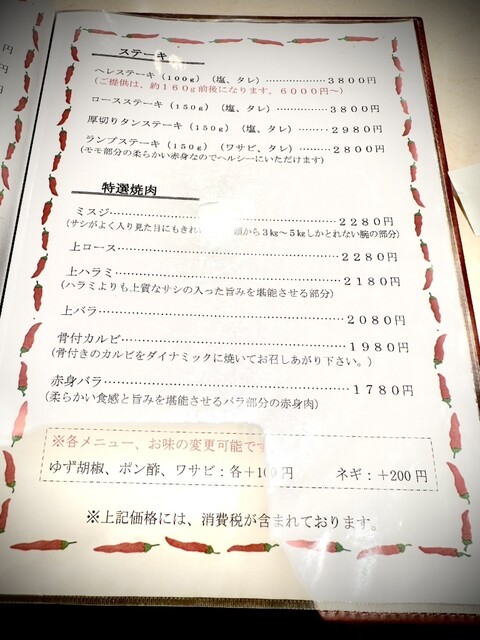 円
円
円
ステーキ
ヘレステーキ(100g)(塩、タレ)………………3800円
(ご提供は、約160g前後になります。6000円~)
ロースステーキ(150g)(塩、タレ)……………3800円
厚切りタンステーキ(150g)(塩、タレ)………2980円
ランプステーキ(150g)(ワサビ、タレ)………2800円
(モモ部分の柔らかい赤身なのでヘルシーにいただけます)
特選焼肉
ミスジ………………………………………………2280円
(サシがよく入り見た目にもきれい 頭から3㎏~5㎏しかとれない腕の部分)
上ロース……………………………………………2280円
上ハラミ……………………………………………2180円
(ハラミよりも上質なサシの入った旨みを堪能させる部分)
上バラ………………………………………………2080円
骨付カルビ…………………………………………1980円
(骨付きのカルビをダイナミックに焼いてお召しあがり下さい。)
赤身バラ……………………………………………1780円
(柔らかい食感と旨みを堪能させるバラ部分の赤身肉)
※各メニュー、お味の変更可能です
ゆず胡椒、ポン酢、ワサビ:各+100円 ネギ:+200円
※上記価格には、消費税が含まれております。